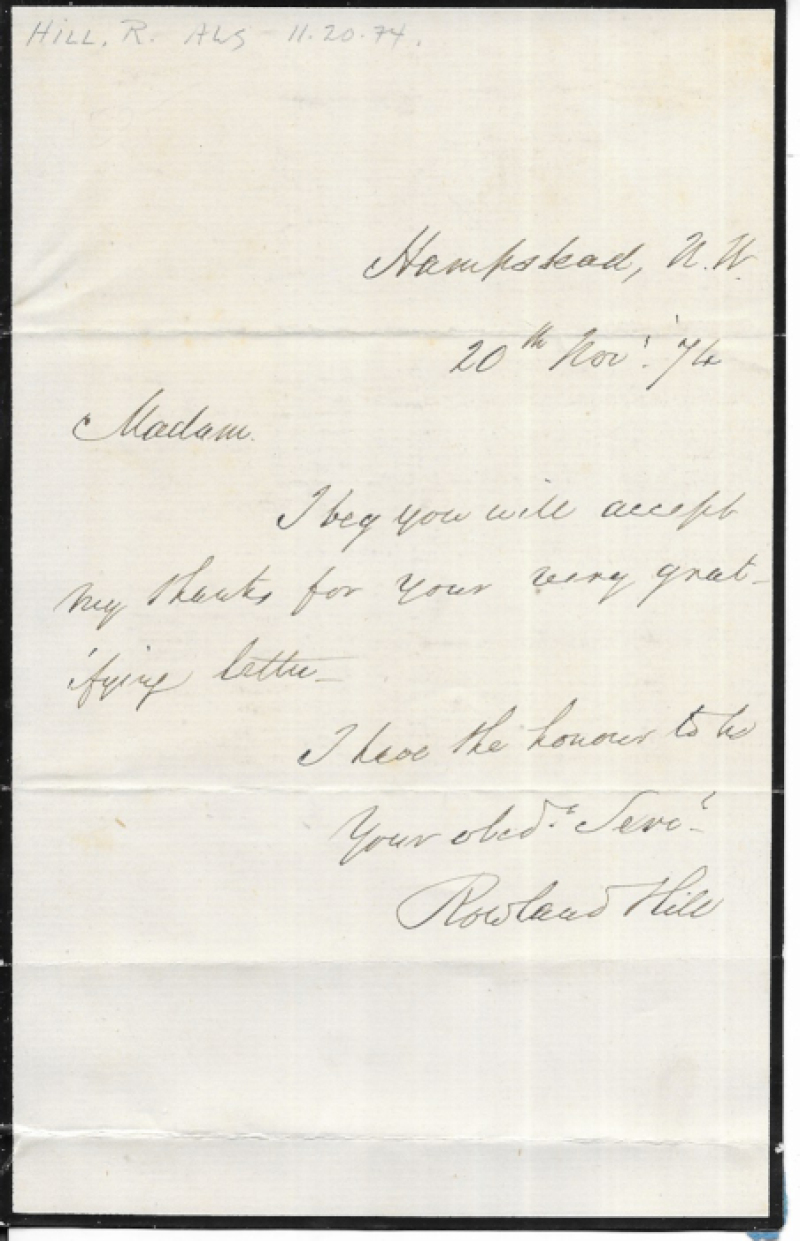 HILL. R. ALS 11.20.74.
Hampstead, N.W.
20th Novr. '74
Madam.
I beg you will accept
my thanks for your very grat-
ifying letter_
I have the honour to be
Your obedt. Servt.
Rowland Hill